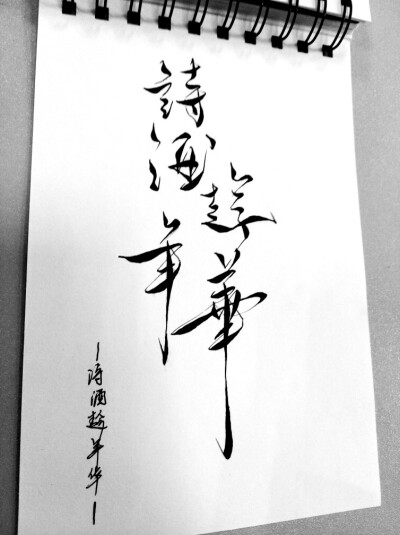 詩酒趁年華
－诗酒趁年华－